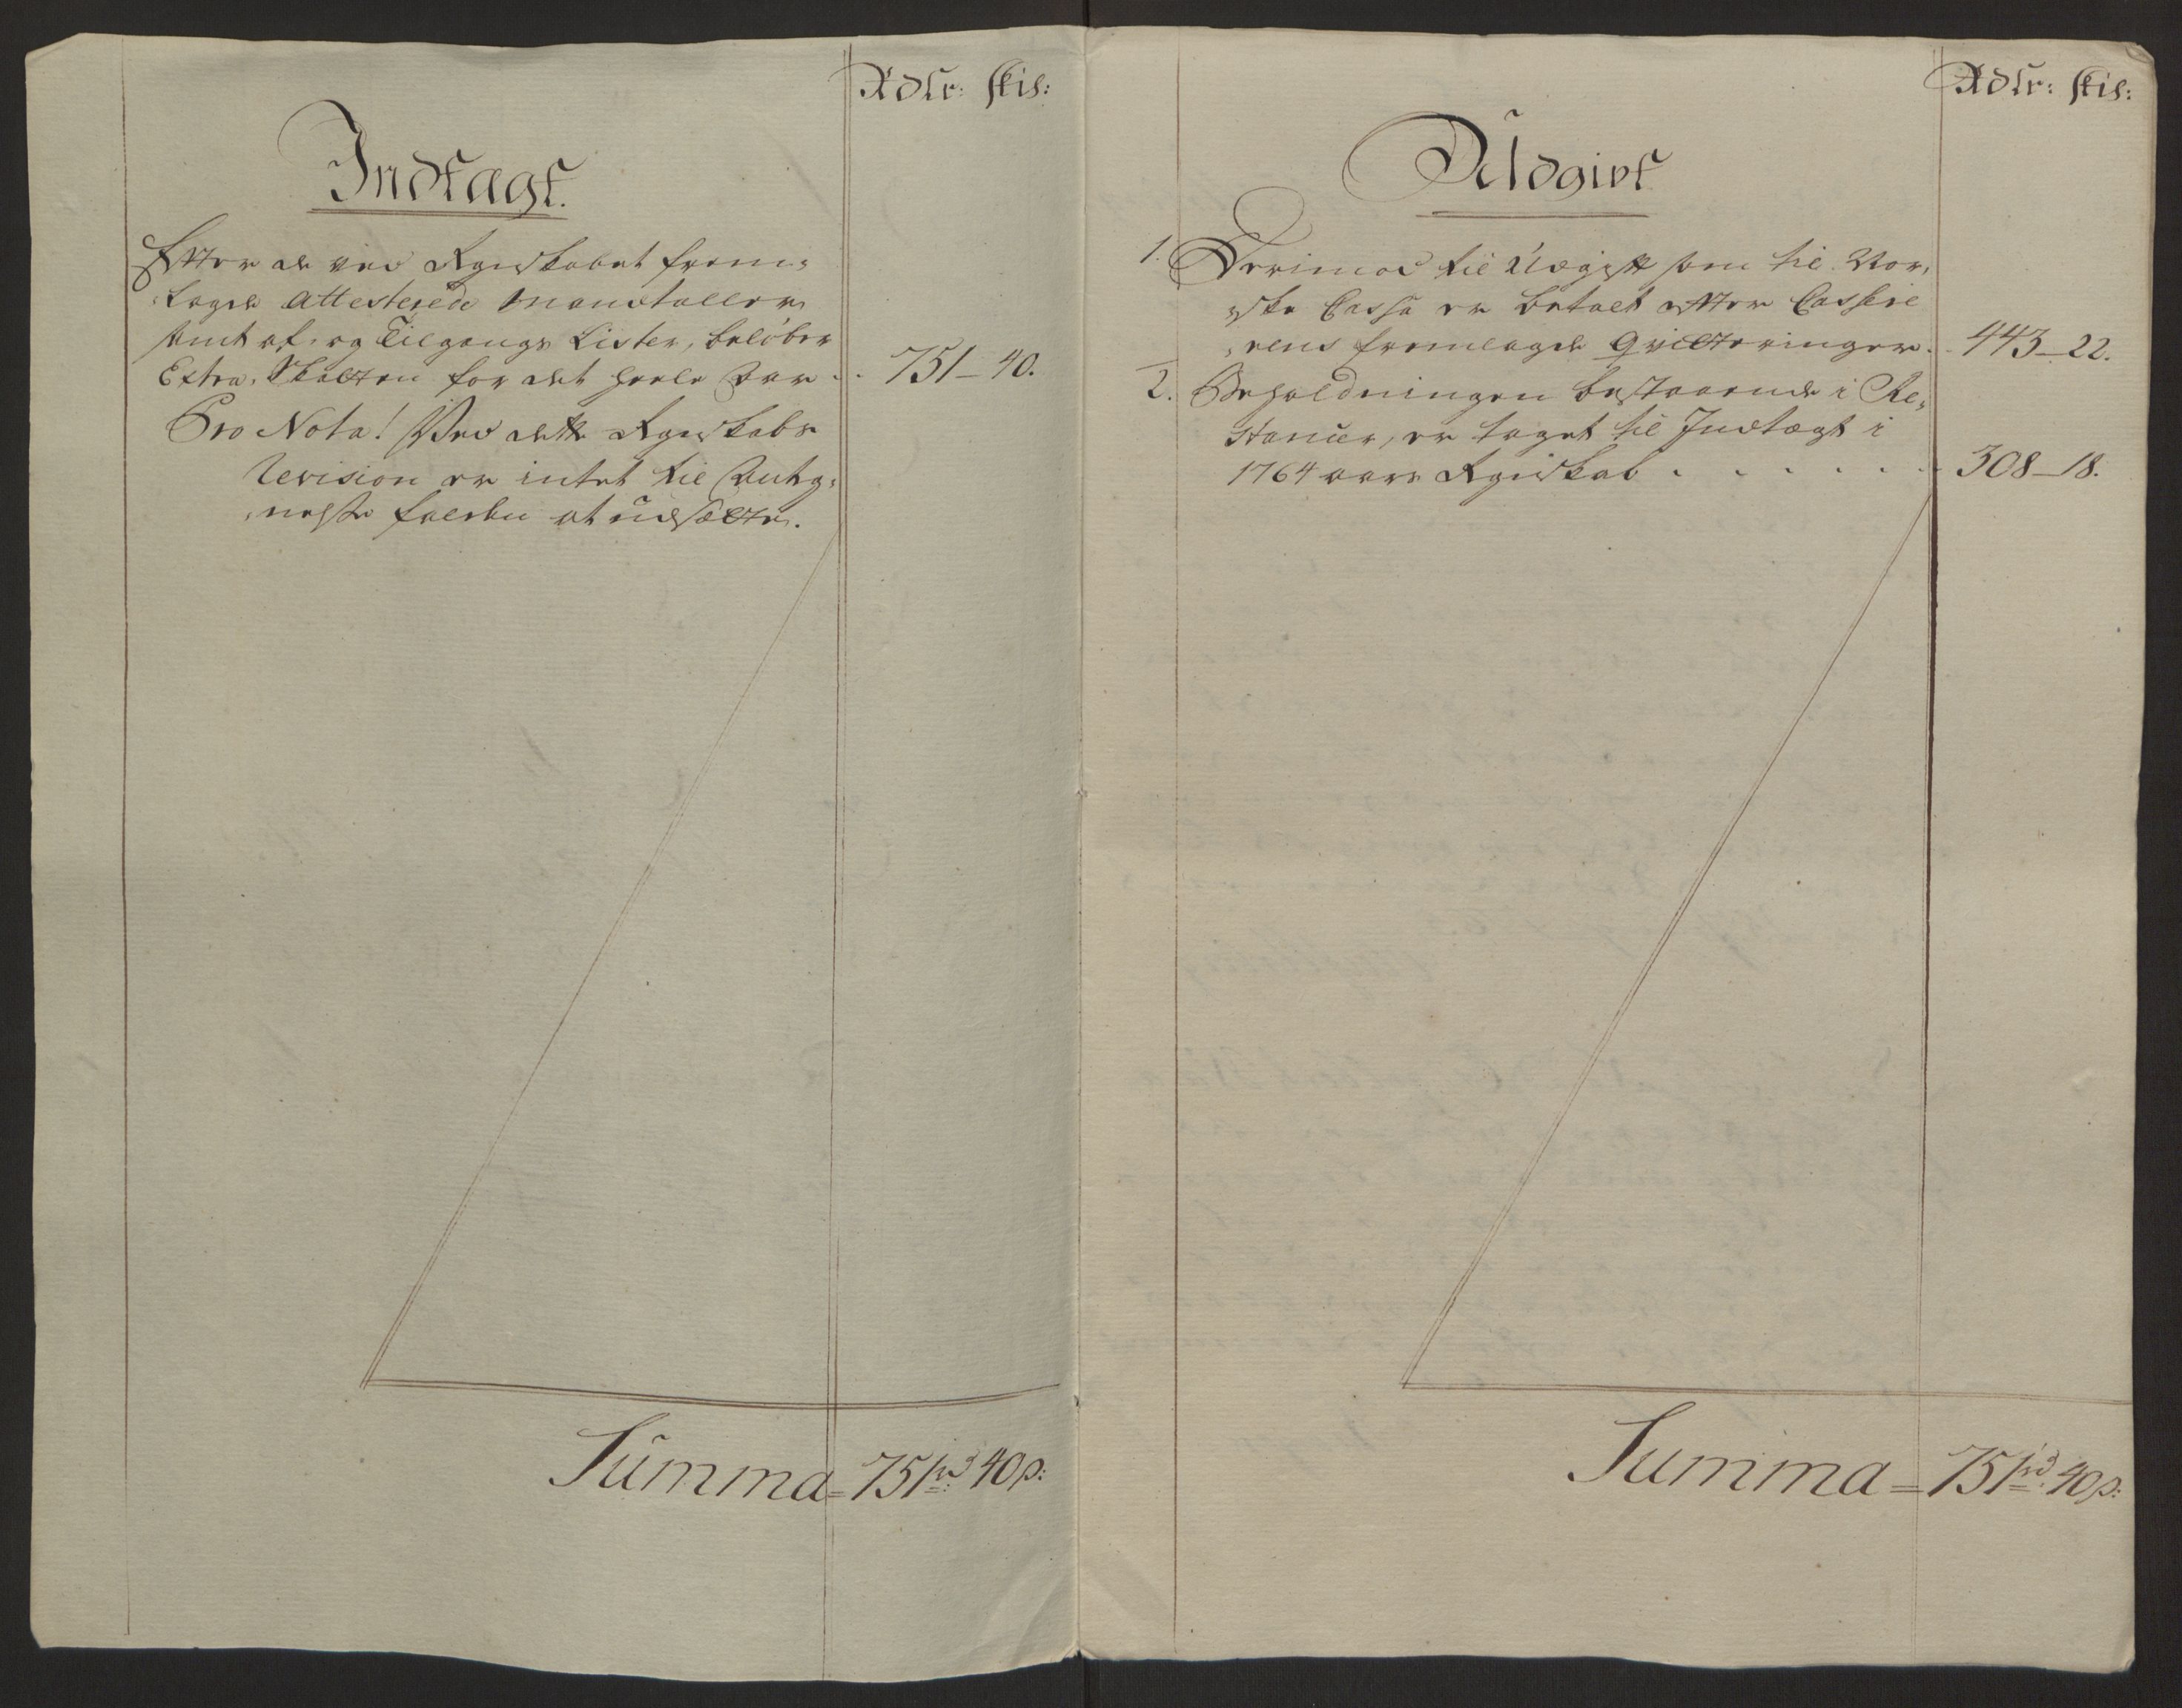 Rdlr: skil:
Indtægt.
Efter de ved Regnskabet frem-
lagde Attesterede Mandtaller
samt af- og Tilgangs Lister, beløber
Extra-Skatten for det heele Aar . . 751 - 40.
Pro Nota! Ved dette Regnskabs
Revision er intet til Anteg-
nelse falden at udsætte.
Summa = 751 rd 40 s:
Rdlr: skil:
Udgivt
1. Derimod til Udgift som til Nor-
ske Cassa er betalt efter Casserer-
ens fremlagde Qvitteringer . . 443 - 22.
2. Beholdningen bestaaende i Re-
stancer, er taget til Indtægt i
1764 aars Regnskab . . . . . . 308 - 18.
Summa = 751 rd 40 s: